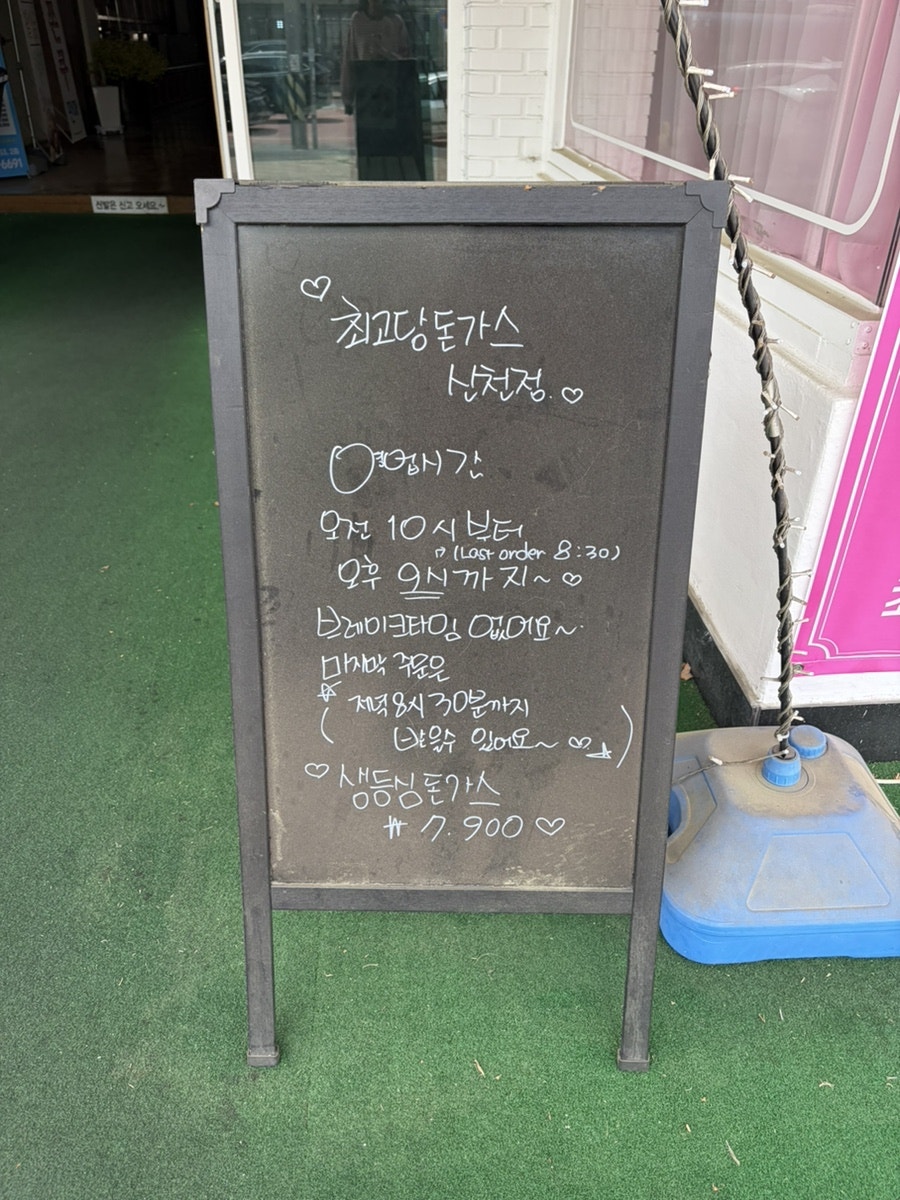 6691
신발은 신고 오세요.~
♡
최고당돈가스
산천점. ♡
영업시간
오전 10시부터
→ (Last order 8:30)
오후 9시까지~ ♡
브레이크타임 없어요~
마지막 주문은
☆
( 저녁 8시 30분까지
받을수 있어요~ ♡☆ )
♡ 생등심돈가스
₩ 7.900 ♡